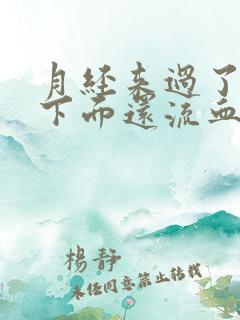 月经来過了
下而還流血
楊静
未经同意禁止转载